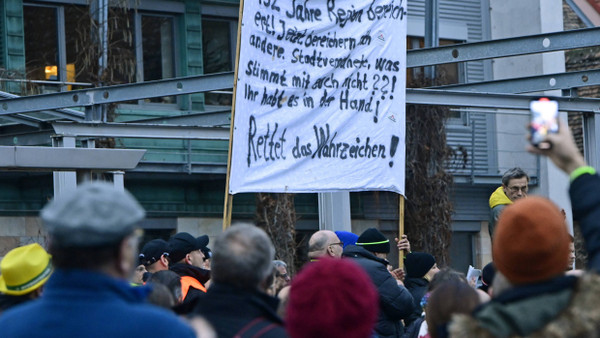 132 Jahre Region bereich-
ert! Jetzt bereichern an
andere. Stadtverordnete, was
stimmt mit euch nicht ??!
Ihr habt es in der Hand!
Rettet das Wahrzeichen!